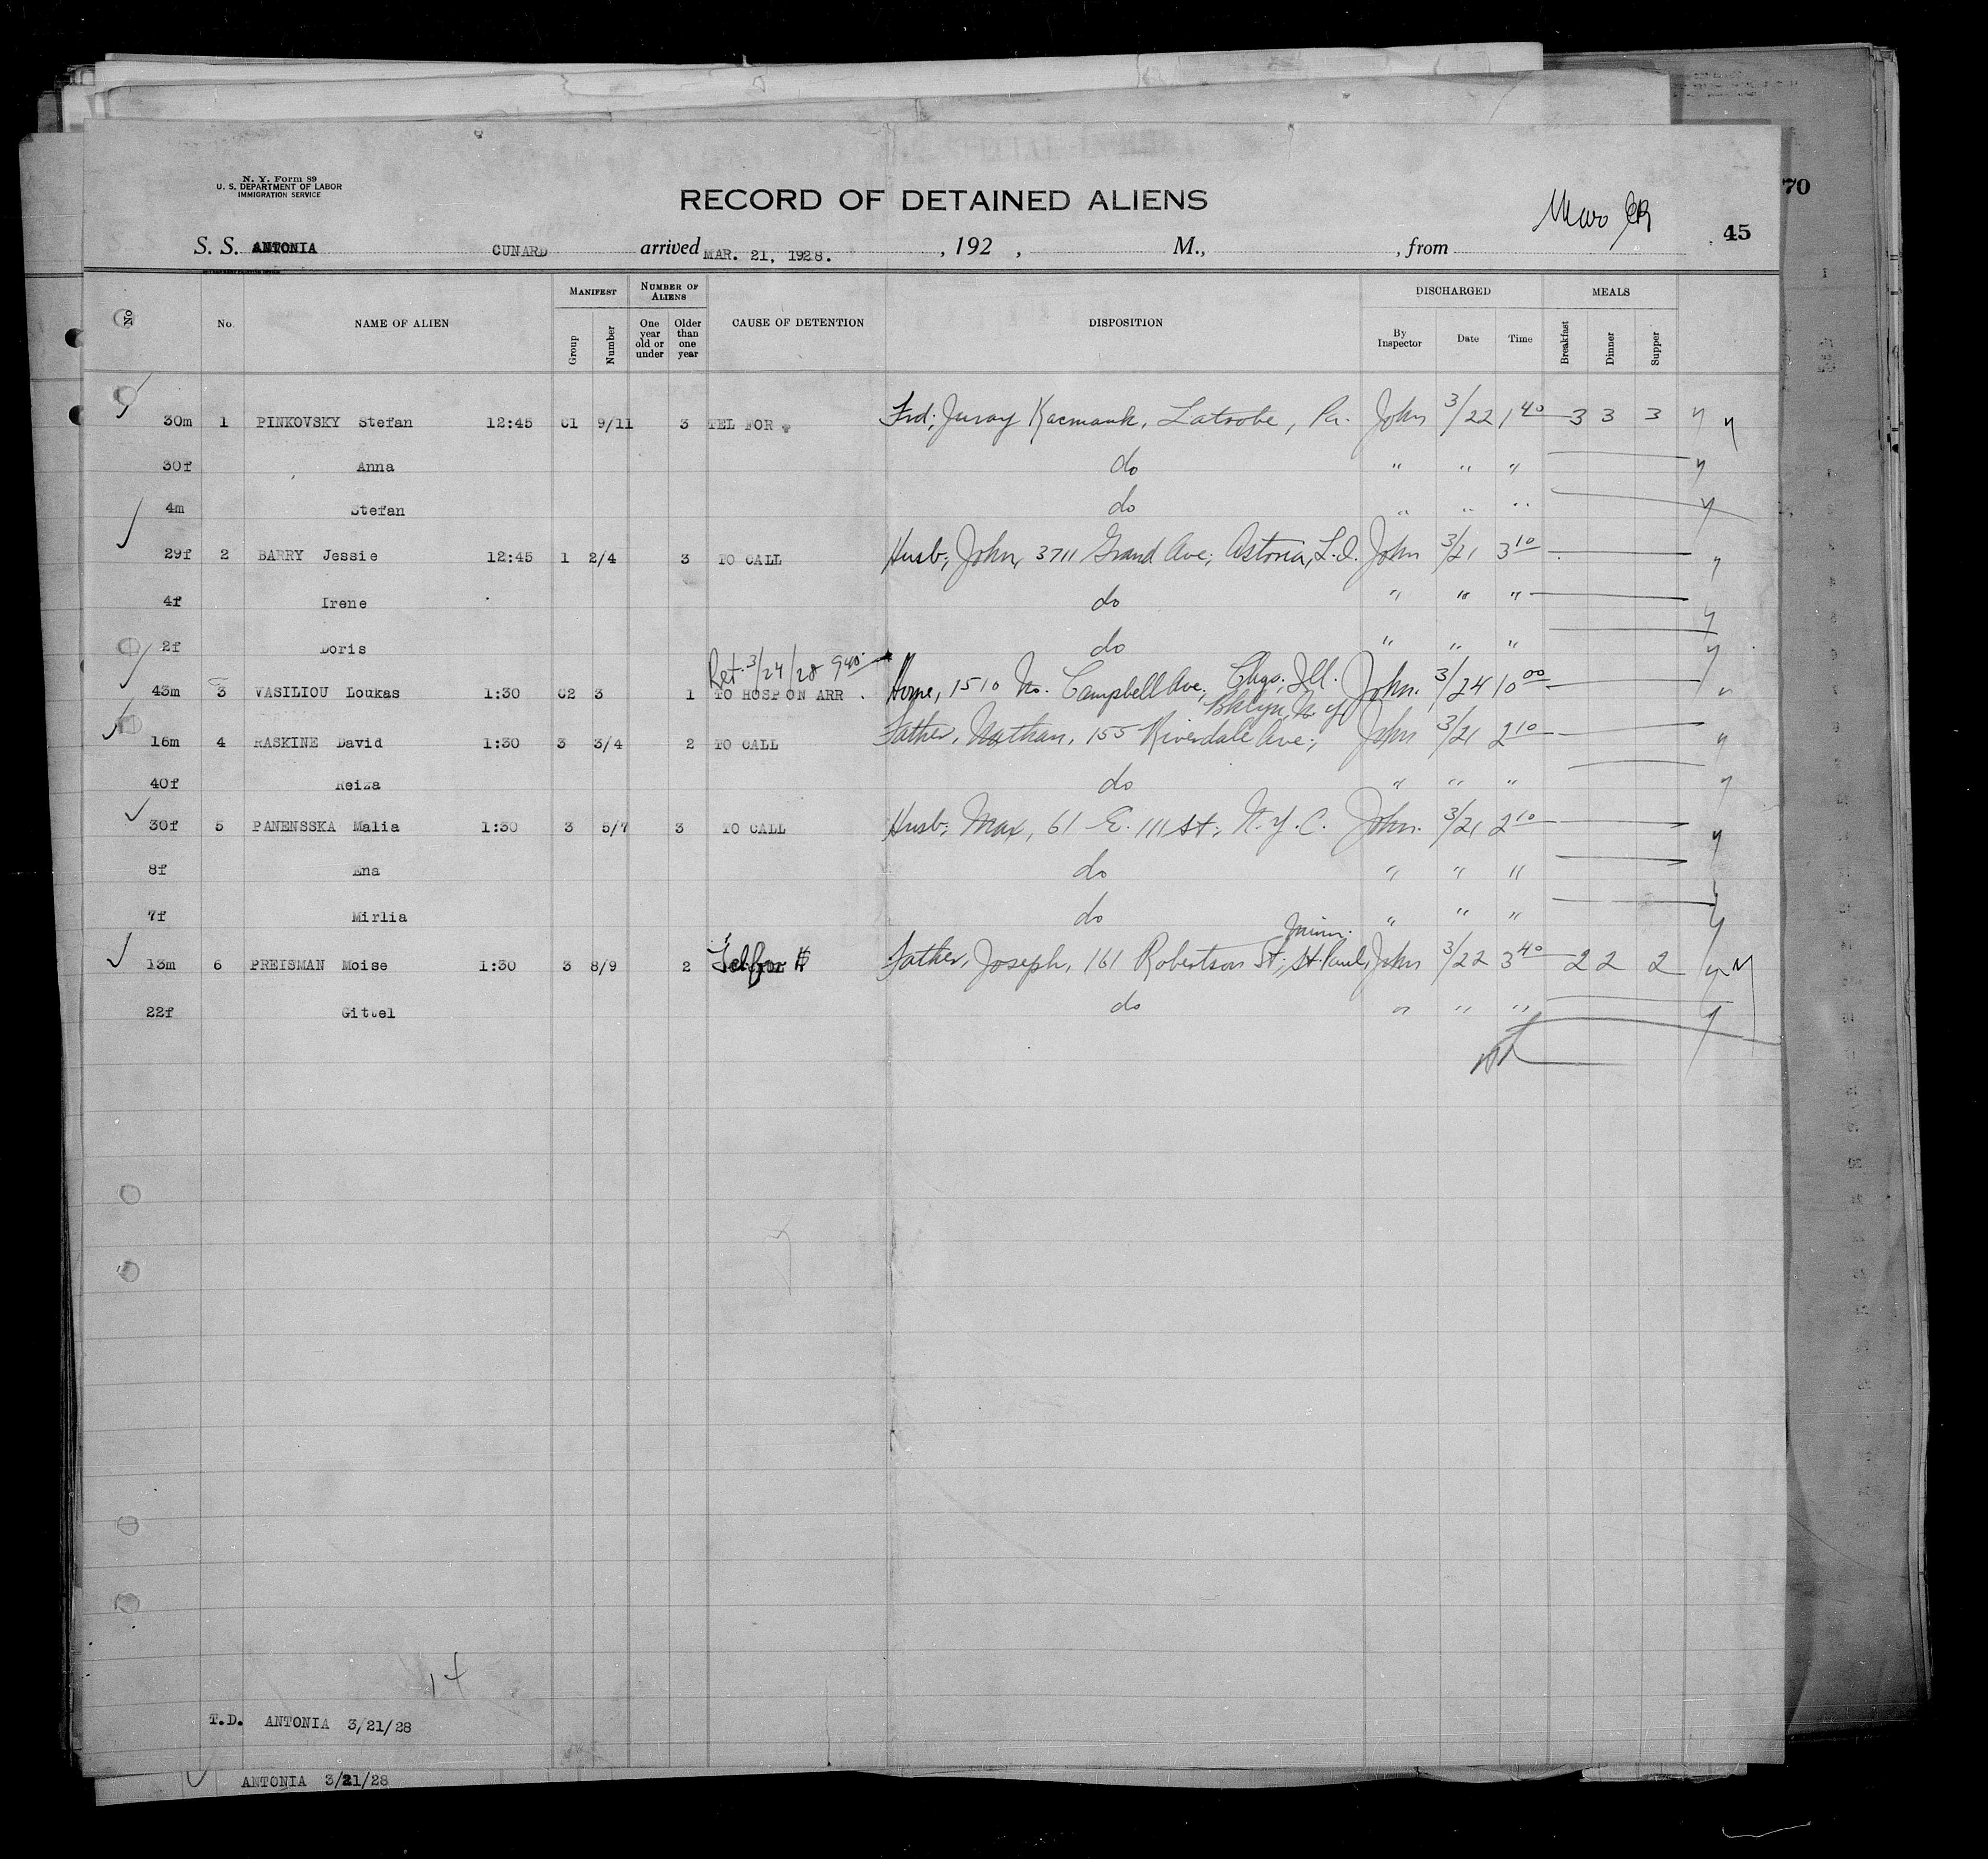 N. Y. Form 89
U. S. DEPARTMENT OF LABOR
IMMIGRATION SERVICE
RECORD OF DETAINED ALIENS
70
45
S. S. ANTONIA CUNARD arrived MAR. 21, 1928. , 192 , M., , from
No No. NAME OF ALIEN MANIFEST Group Number NUMBER OF ALIENS One year old or under Older than one year CAUSE OF DETENTION DISPOSITION DISCHARGED By Inspector Date Time MEALS Breakfast Dinner Supper
30m 1 PINKOVSKY Stefan 12:45 C1 9/11 3 TEL FOR Frd; Juray Latrobe, Pa. John 3/22 1 40 3 3 3
30f Anna do " " "
4m Stefan do " " "
29f 2 BARRY Jessie 12:45 1 2/4 3 TO CALL Husb; John, 3711 Grand Ave; Astoria, L.I. John 3/21 3 10
4f Irene do " " "
2f Doris do " " "
Ret. 3/24/28 9 40
43m 3 VASILIOU Loukas 1:30 C2 3 1 TO HOSP ON ARR . Home, 1510 No. Campbell Ave; Chgo; Ill. John. 3/24 10 00
16m 4 RASKINE David 1:30 3 3/4 2 TO CALL Father, Nathan, 155 Riverdale Ave; Bklyn, N.Y. John 3/21 2 10
40f Reiza do " " "
30f 5 PANENSSKA Malia 1:30 3 5/7 3 TO CALL Husb; Max, 61 E. 111 St; N.Y.C. John. 3/21 2 10
8f Ena do " " "
7f Mirlia do " " "
13m 6 PREISMAN Moise 1:30 3 8/9 2 Tel for $ Father, Joseph, 161 Robertson St; St. Paul, Minn. John 3/22 3 40 2 2 2
22f Gittel do " " "
14
T.D. ANTONIA 3/21/28
ANTONIA 3/21/28